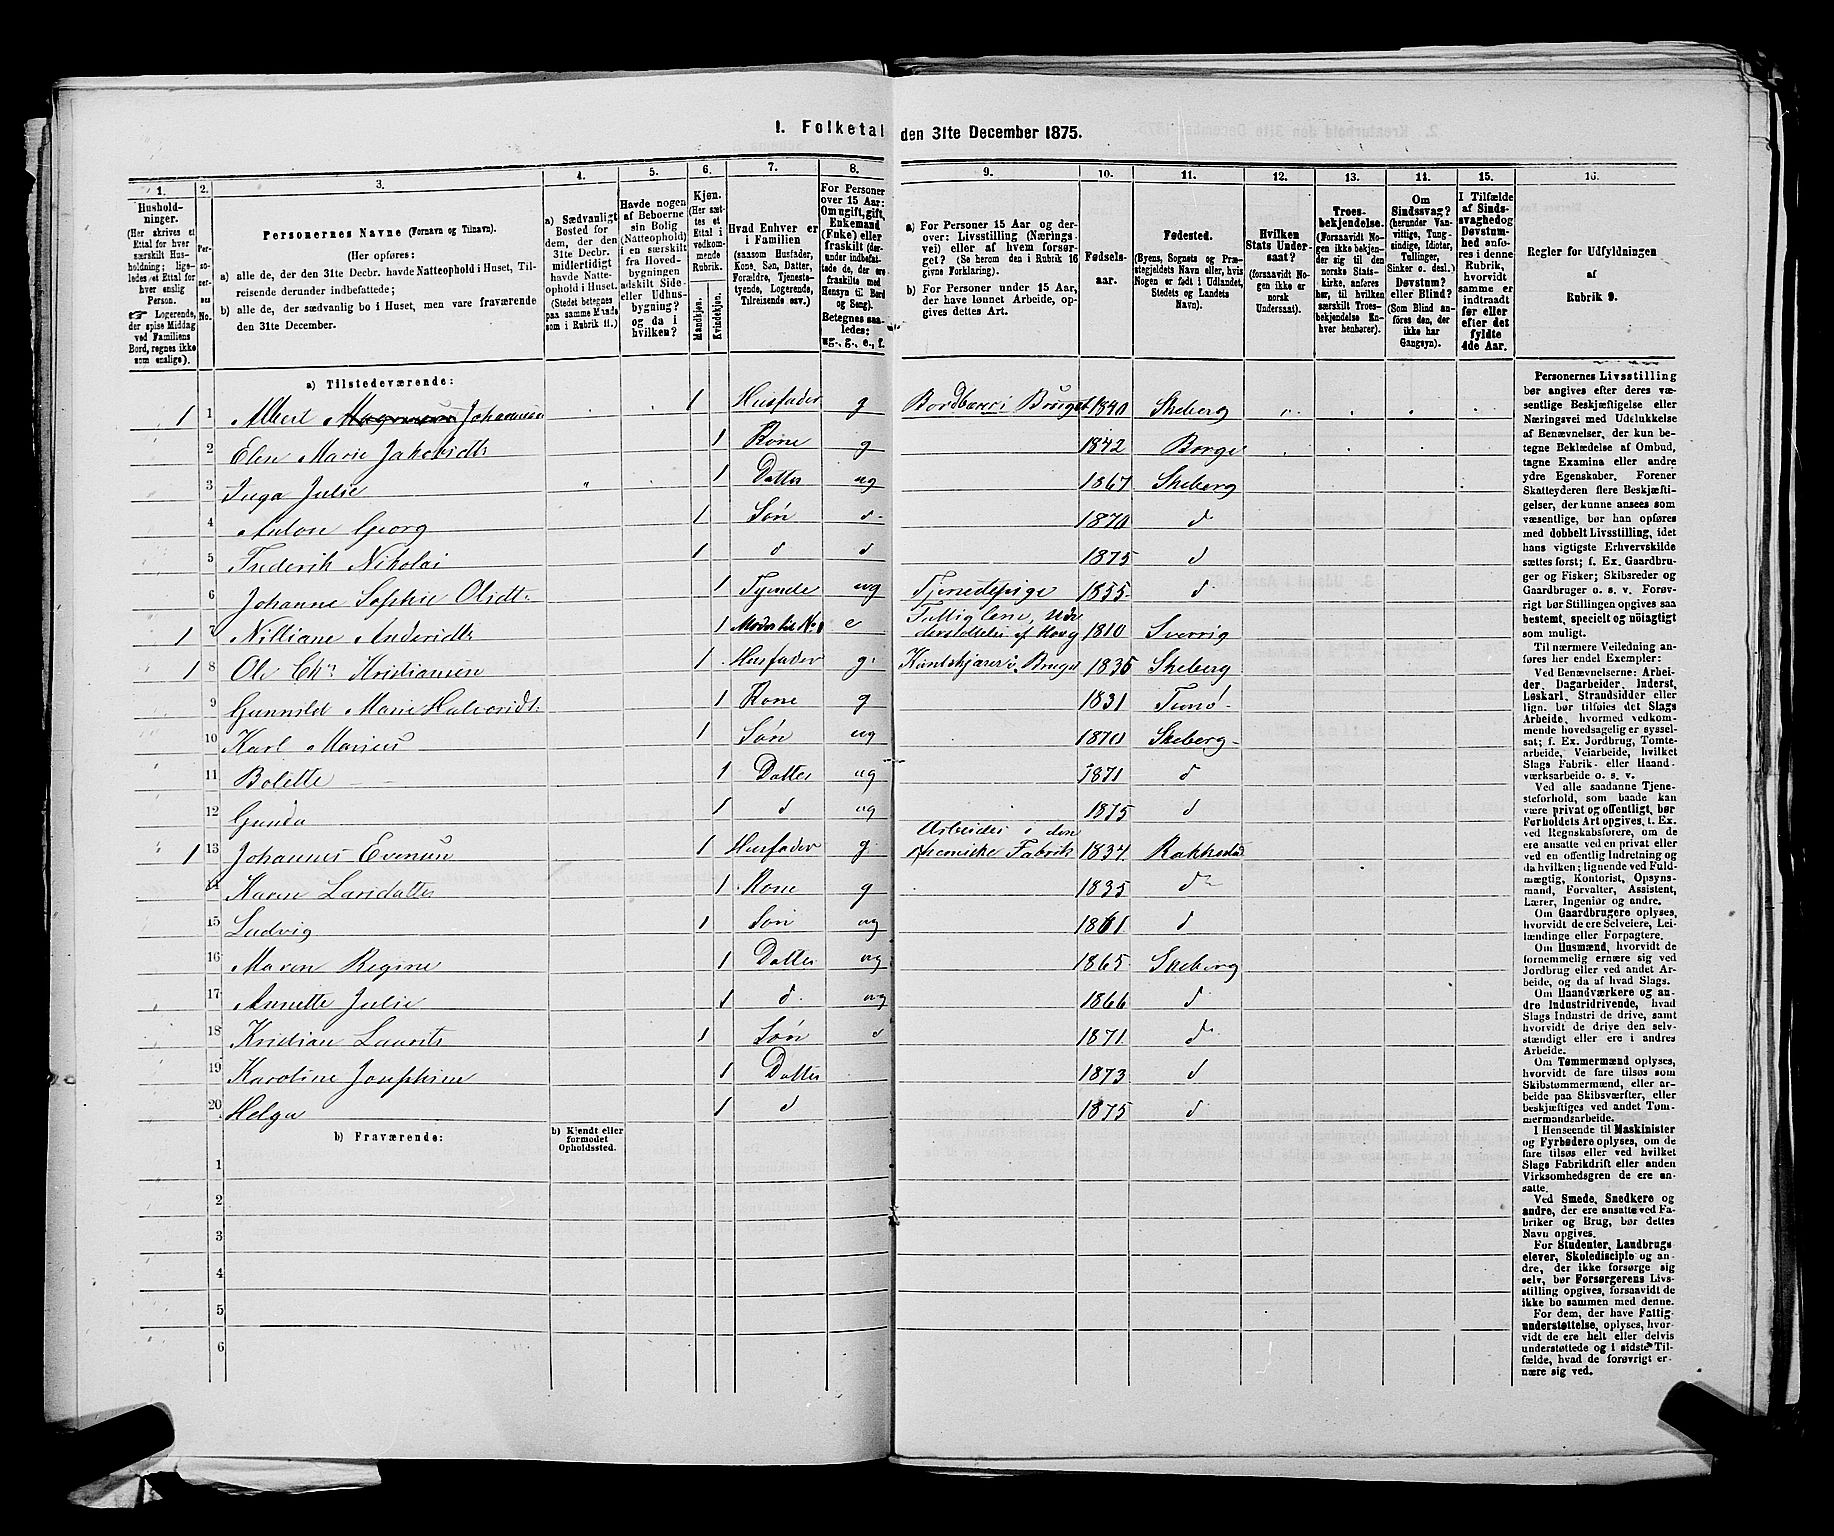 1. Folketal den 31te December 1875.
1. 2. 3. 4. 5. 6. 7. 8. 9. 10. 11. 12. 13. 14. 15. 16.
Hushold-
ninger.
(Her skrives et
Ettal for hver
særskilt Hus-
holdning; lige-
ledes et Ettal for
hver enslig
Person.
☞ Logerende,
der spise Middag
ved Familiens
Bord, regnes ikke
som enslige).
Per-
so-
ner-
nes
No.
Personernes Navne (Fornavn og Tilnavn).
(Her opføres:
a) alle de, der den 31te Decbr. havde Natteophold i Huset, Til-
reisende derunder indbefattede;
b) alle de, der sædvanlig bo i Huset, men vare fraværende
den 31te December.
a) Sædvanligt
Bosted for
dem, der den
31te Decbr.
midlertidigt
havde Natte-
ophold i Huset.
(Stedet betegnes
paa samme Maade
som i Rubrik 11.)
Havde nogen
af Beboerne
sin Bolig
(Natteophold)
i en særskilt
fra Hoved-
bygningen
adskilt Side-
eller Udhus-
bygning?
og da i
hvilken?
Kjøn.
(Her sæt-
tes et
Ettal i
vedkom-
mende
Rubrik.
Mandkjøn.
Kvindekjøn.
Hvad Enhver er
i Familien
(saasom Husfader,
Kone, Søn, Datter,
Forældre, Tjeneste-
tyende, Logerende,
Tilreisende osv.)
For Personer
over 15 Aar:
Om ugift, gift,
Enkemand
(Enke) eller
fraskilt (der-
under indbefat-
tede de, der ere
fraskilte med
Hensyn til Bord
og Seng).
Betegnes saa-
ledes:
ug., g., e., f.
a) For Personer 15 Aar og der-
over: Livsstilling (Nærings-
vei) eller af hvem forsør-
get? (Se herom den i Rubrik 16
givne Forklaring).
b) For Personer under 15 Aar,
der have lønnet Arbeide, op-
gives dettes Art.
Fødsels-
aar.
Fødested.
(Byens, Sognets og Præ-
stegjeldets Navn eller, hvis
Nogen er født i Udlandet,
Stedets og Landets
Navn).
Hvilken
Stats Under-
saat?
(forsaavidt No-
gen ikke er
norsk
Undersaat).
Troes-
bekjendelse.
(Forsaavidt No-
gen ikke bekjen-
der sig til den
norske Stats-
kirke, anføres
her, til hvilken
særskilt Troes-
bekjendelse En-
hver henhører).
Om
Sindssvag?
(herunder Van-
vittige, Tung-
sindige, Idioter,
Tullinger,
Sinker o. desl.)
Døvstum?
eller Blind?
(Som Blind an-
føres den, der
ikke har
Gangsyn).
I Tilfælde
af Sinds-
svaghed og
Døvstum-
hed anfø-
res i denne
Rubrik,
hvorvidt
samme er
indtraadt
før eller
efter det
fyldte
4de Aar.
Regler for Udfyldningen
af
Rubrik 9.
a) Tilstedeværende:
1 1 Albert Magnusen Johannesen 1 Husfader g Bordbærer i Bruget 1840 Skeberg
2 Elen Marie Jakobsdtr 1 Kone g 1842 Borge
3 Inga Julie 1 Datter ug 1867 Skeberg
4 Anton Georg 1 Søn d 1870 d
5 Frederik Nikolai 1 d d 1875 d
6 Johanne Sophie Olsdtr 1 Tyende ug Tjenestepige 1855 d
1 7 Nilliane Andersdtr 1 Moder til No 1 e Fattiglem, Un-
derstøttes af 1810 Sverrig
1 8 Ole Chr. Kristiansen 1 Husfader g. i Bruget 1835 Skeberg
9 Gunnild Marie Halvorsdtr. 1 Kone g 1831 Tunø
10 Karl Marius 1 Søn ug 1870 Skeberg
11 Bolette 1 Datter ug 1871 d
12 Gunda 1 d ug 1875 d
1 13 Johannes Evensen 1 Husfader g. Arbeider i den
chemiske Fabrik 1834 Rakkestad
14 Karen Larsdatter 1 Kone g 1835 d
15 Ludvig 1 Søn ug 1861 d
16 Maren Regine 1 Datter ug 1865 Skeberg
17 Annette Julie 1 d ug 1866 d
18 Kristian Laurits 1 Søn d 1871 d
19 Karoline Josephine 1 Datter 1873 d
20 Helga 1 d 1875 d
b) Fraværende:
b) Kjendt eller
formodet
Opholdssted.
1
2
3
4
5
6
Personernes Livsstilling
bør angives efter deres væ-
sentlige Beskjæftigelse eller
Næringsvei med Udelukkelse
af Benævnelser, der kun be-
tegne Beklædelse af Ombud,
tagne Examina eller andre
ydre Egenskaber. Forener
Skatteyderen flere Beskjæfti-
gelser, der kunne ansees som
væsentlige, bør han opføres
med dobbelt Livsstilling, idet
hans vigtigste Erhvervskilde
sættes først; f. Ex. Gaardbru-
ger og Fisker; Skibsreder og
Gaardbruger o. s. v. Forøv-
rigt bør Stillingen opgives saa
bestemt, specielt og nøiagtigt
som muligt.
Til nærmere Veiledning an-
føres her endel Exempler:
Ved Benævnelserne: Arbei-
der, Dagarbeider, Inderst,
Løskarl, Strandsidder eller
lign. bør tilføies det Slags
Arbeide, hvormed vedkom-
mende hovedsagelig er syssel-
sat; f. Ex. Jordbrug, Tomte-
arbeide, Veiarbeide, hvilket
Slags Fabrik- eller Haand-
værksarbeide o. s. v.
Ved alle saadanne Tjene-
steforhold, som baade kan
være privat og offentligt, bør
Forholdets Art opgives, t. Ex.
ved Regnskabsførere, om de
ere ansatte ved en privat eller
ved en offentlig Indretning og
da hvilken; lignende ved Fuld-
mægtig, Kontorist, Opsyns-
mand, Forvalter, Assistent,
Lærer, Ingeniør og andre.
Om Gaardbrugere oplyses,
hvorvidt de ere Selveiere, Lei-
lændinge eller Forpagtere.
Om Husmænd, hvorvidt de
fornemmelig ernære sig ved
Jordbrug eller ved andet Ar-
beide, og da af hvad Slags.
Om Haandværkere og an-
dre Industridrivende, hvad
Slags Industri de drive, samt
hvorvidt de drive den selv-
stændigt eller ere i andres
Arbeide.
Om Tømmermænd oplyses,
hvorvidt de fare tilsøs som
Skibstømmermænd, eller ar-
beide paa Skibsværfter, eller
beskjæftiges ved andet Tøm-
mermandsarbeide.
I Henseende til Maskinister
og Fyrbødere oplyses, om de
fare tilsøs eller ved hvilket
Slags Fabrikdrift eller anden
Virksomhedsgren de ere an-
satte.
Ved Smede, Snedkere og
andre, der ere ansatte ved Fa-
briker og Brug, bør dettes
Navn opgives.
For Studenter, Landbrugs-
elever, Skoledisciple og an-
dre, der ikke forsørge sig
selv, bør Forsørgerens Livs-
stilling opgives, forsaavidt de
ikke bo sammen med denne.
For dem, der have Fattig-
understøttelse, oplyses, hvor-
vidt de ere helt eller delvis
understøttede og i sidste Til-
fælde, hvad de forøvrigt er-
nære sig ved.